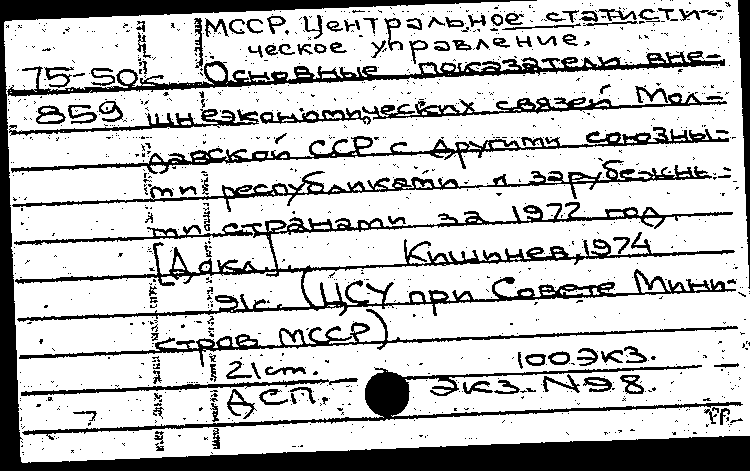 МССР. Центральное статисти-
ческое управление.
75-50к Основные показатели вне-
859 шнеэкономических связей Мол-
давской ССР с другими союзны-
ми республиками и зарубежны-
ми странами за 1972 год.
[Докл.]. Кишинев, 1974
91с. (ЦСУ при Совете Мини-
стров МССР).
21см. 100экз.
ДСП. Экз. №98.
7